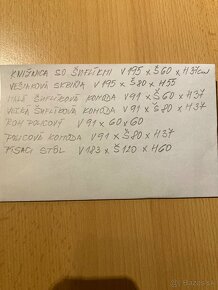 KNIŽNICA SO ŠUFLÍKMI V 195 x Š60 x H37cm
VEŠIAKOVÁ SKRIŇA V195 x Š80 x H55
MALÁ ŠUFLÍKOVÁ KOMODA V91 x Š60 x H37
VEĽKÁ ŠUFLÍKOVÁ KOMODA V91 x Š80 x H37
ROH POLICOVÝ V91 x 60 x 60
POLICOVÁ KOMODA V91 x Š80 x H37
PÍSACÍ STÔL V183 x Š120 x H60
bazos.sk